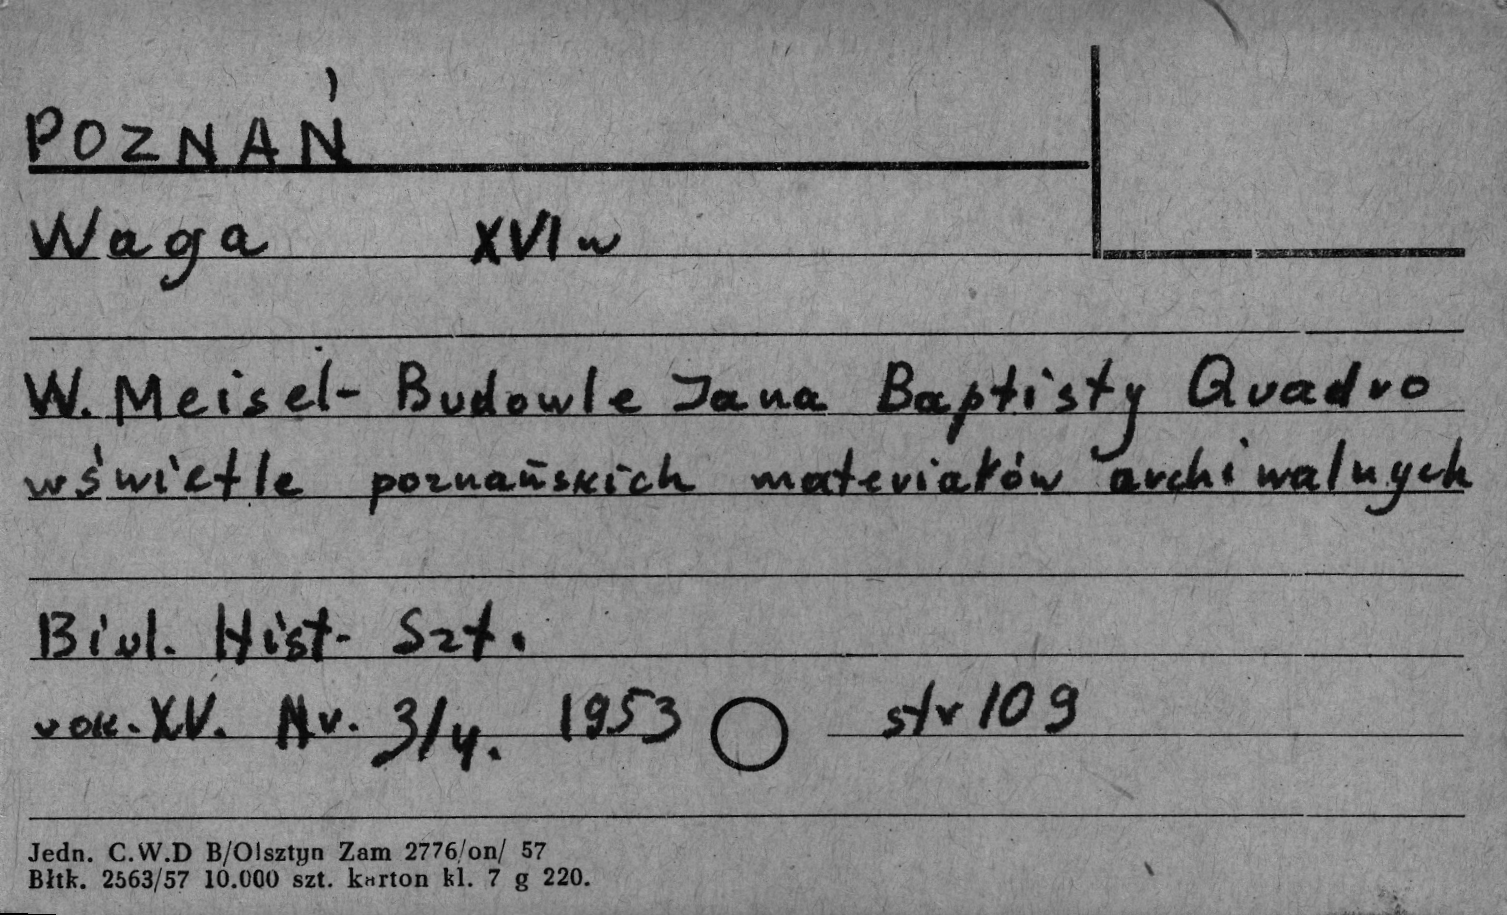 POZNAŃ
Waga XVI w
W. Meisel - Budowle Jana Baptisty Quadro
w świetle poznańskich materiałów archiwalnych
Biul. Hist. Szt.
rok. XV. Nr. 3/4. 1953 str 109
Jedn. C.W.D B/Olsztyn Zam 2776/on/ 57
Błtk. 2563/57 10.000 szt. karton kl. 7 g 220.